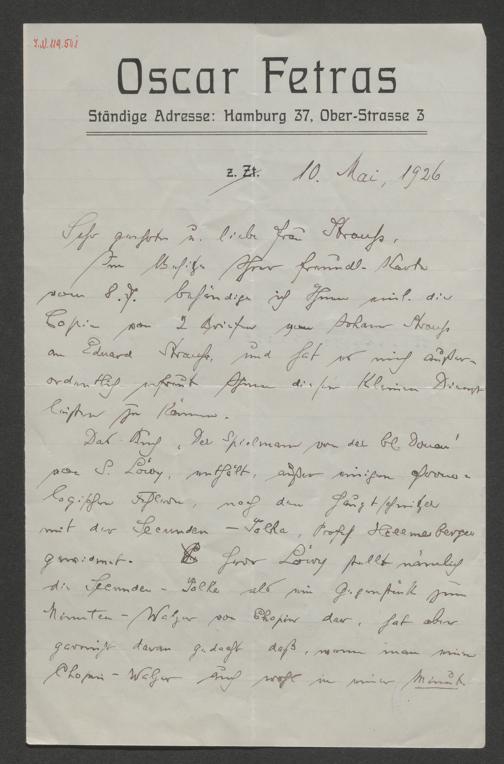 I.N. 119.501
Oscar Fetras
Ständige Adresse: Hamburg 37, Ober-Strasse 3
z. Zt. 10. Mai, 1926
Sehr geehrte u. liebe Frau Strauss,
Im Besitze Ihrer freundl. Karte
vom 8. d. behändige ich Ihnen einl. die
Copie von 2 Briefen von Johann Strauss
an Eduard Strauss, und hat es mich außer-
ordentlich erfreut Ihnen diesen kleinen Dienst
leisten zu können.
Das Buch „Der Spielmann von der bl. Donau"
von S. Loewy, enthält, außer einigen chrono-
logischen Fehlern, noch den Hauptschnitzer
mit der Secunden-Polka, Profess. Hellmesberger
gewidmet. Herr Loewy stellt nämlich
die Secunden-Polka als ein Gegenstück zum
Minuten-Walzer von Chopin dar, hat aber
garnicht daran gedacht daß, wenn man einen
Chopin-Walzer auch wohl in einer Minute